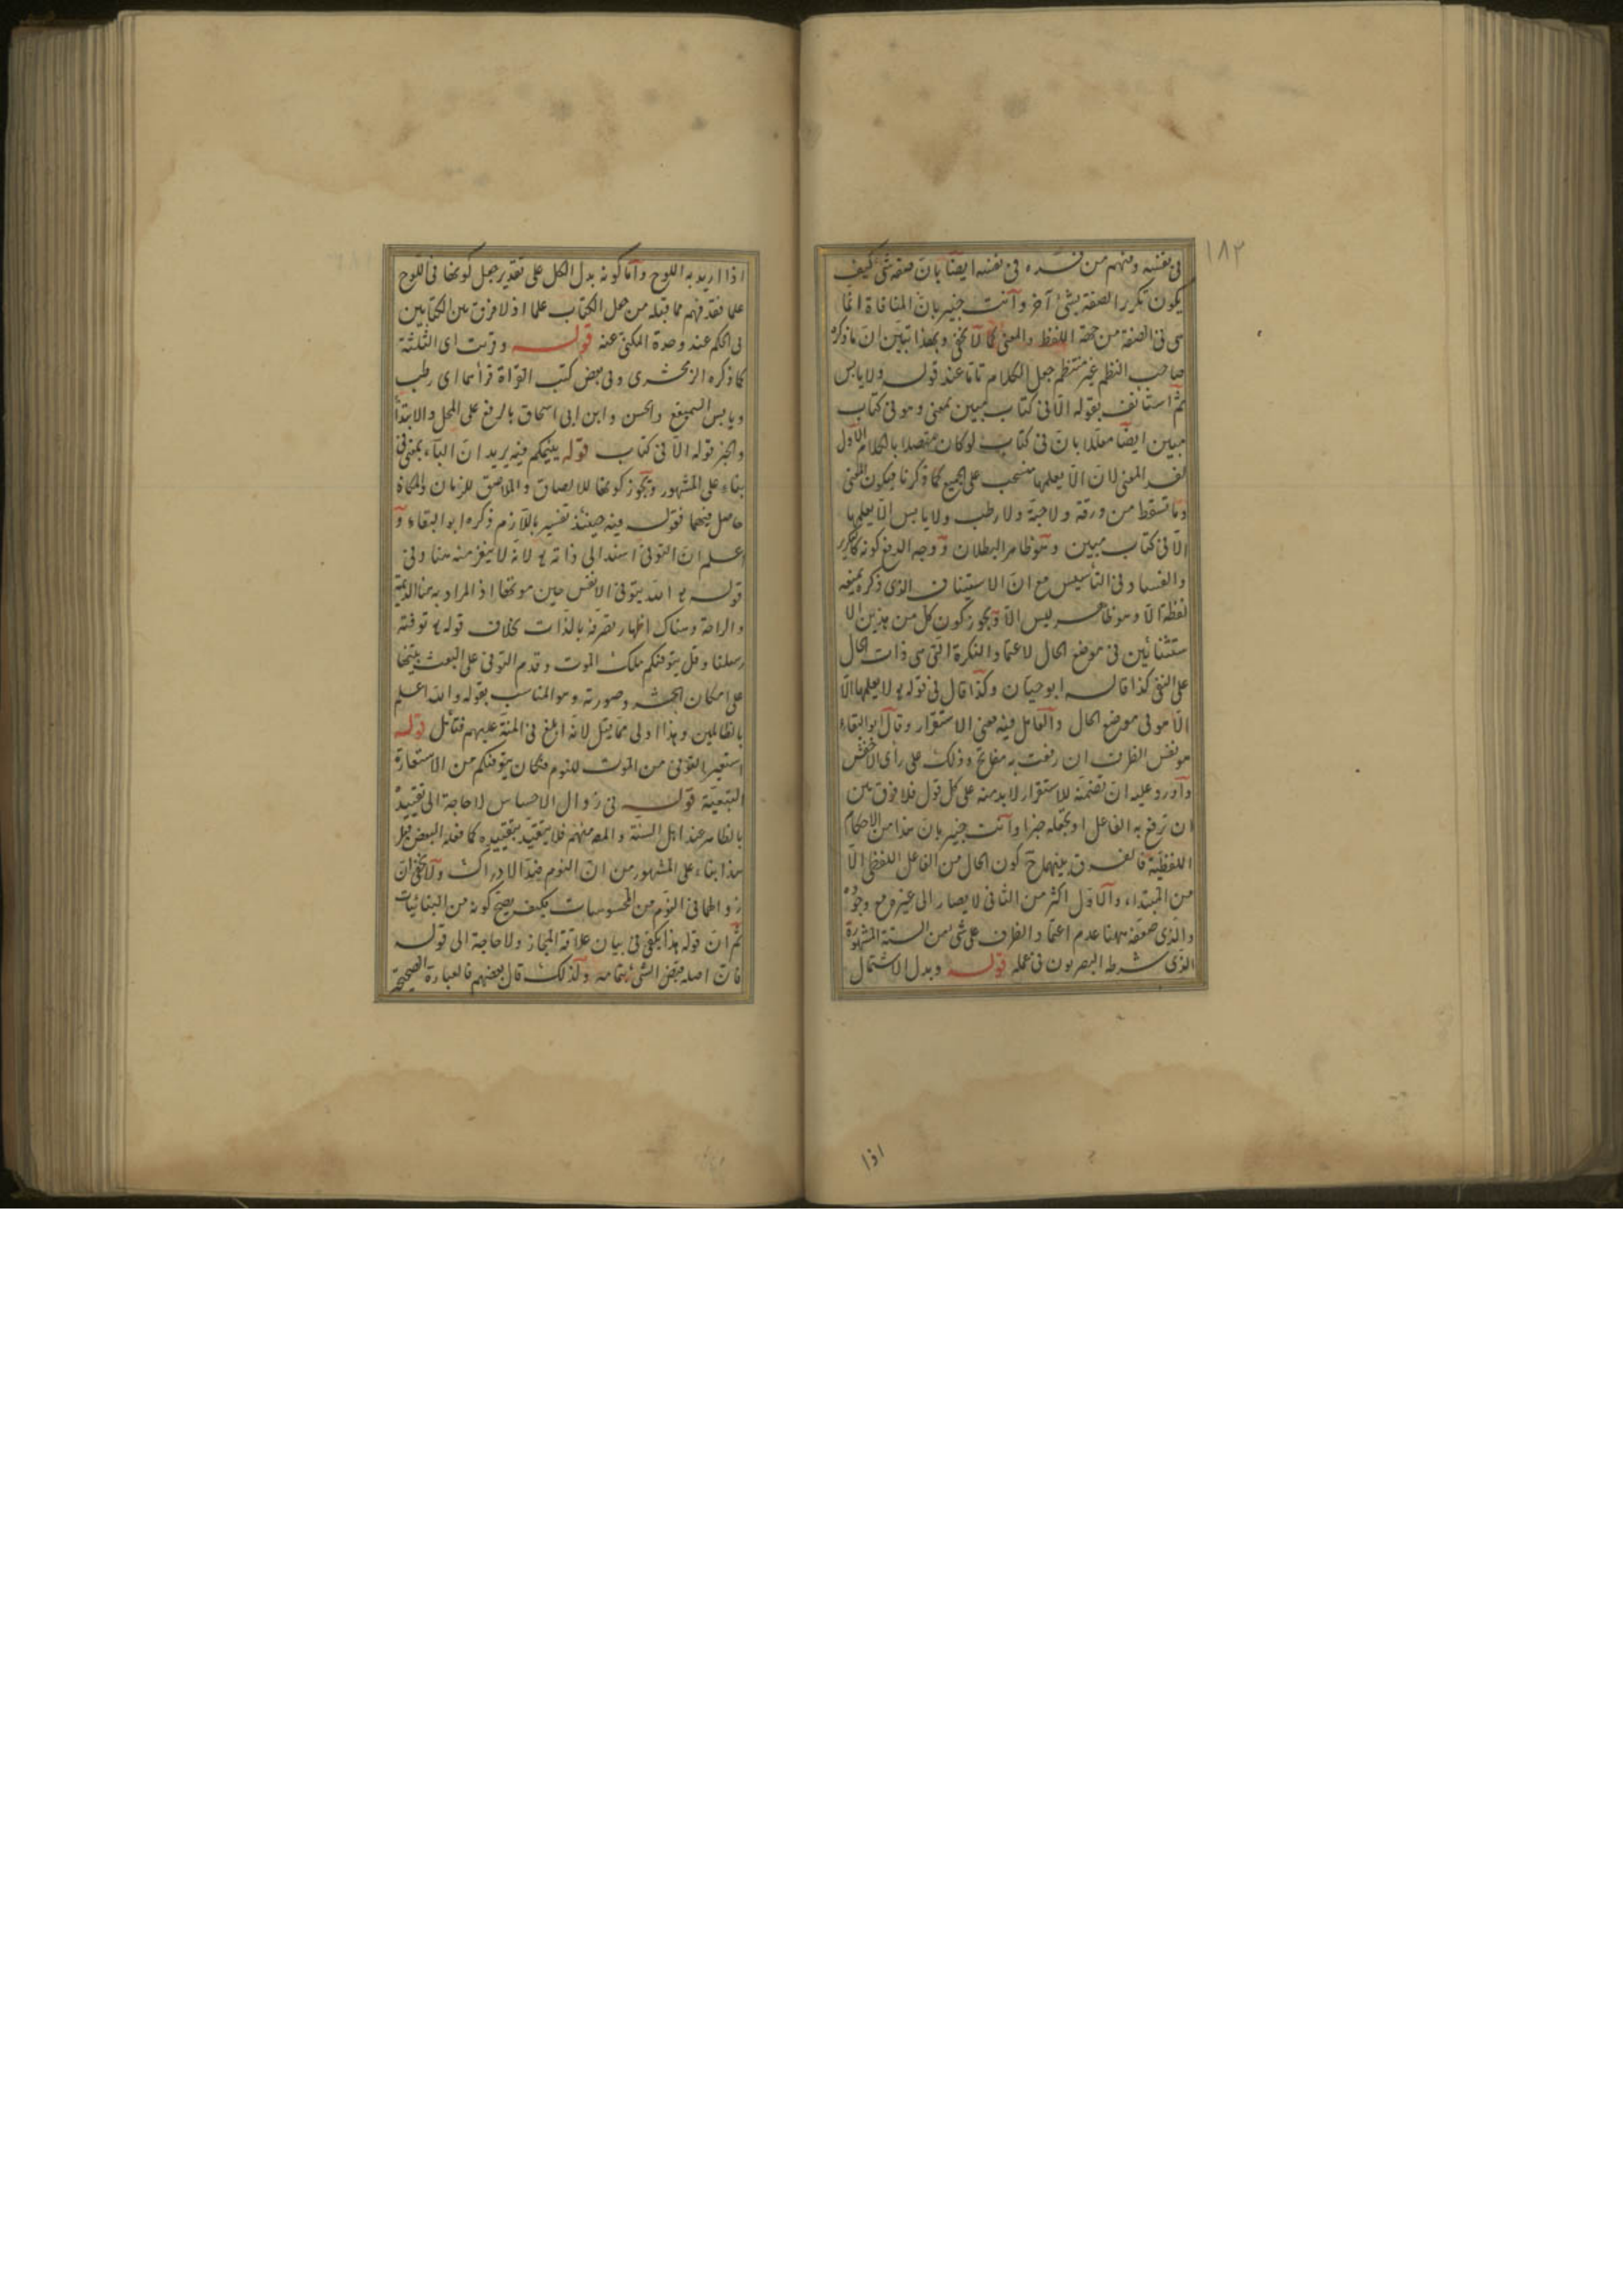 ١٨٢
فى نفسه ومنهم من فسره فى نفسه ايضا بان صفة شى كيف
يكون تكرر الصفة بشئ آخر وانت خبير بان المنافاة انما
هى فى الصفة من جهة اللفظ والمعنى كما لا يخفى وبهذا تبين ان ما ذكره
صاحب النظم غير منتظم جعل الكلام تاما عند قوله ولا يابس
ثم استأنف بقوله الا فى كتاب مبين بمعنى وهو فى كتاب
مبين ايضا معللا بان فى كتاب لو كان متصلا بالكلام الاول
لفسد المعنى لان الا يعلمها منسحب على الجميع كما ذكرنا فيكون المعنى
وما تسقط من ورقة ولا حبة ولا رطب ولا يابس الا يعلمها
الا فى كتاب مبين وهو ظاهر البطلان ووجه الدفع كونه كالتكرير
والفساد فى التأسيس مع ان الاستيناف الذى ذكره يمنعه
لفظة الا وهو ظاهر ليس الا ويجوز كون كل من هذين الا
ستثنائين فى موضع الحال لاعتماد النكرة التى هى ذات الحال
على النفى كذا قاله ابو حيان وكذا قال فى قوله تع لا يعلمها الا
الا هو فى موضع الحال والعامل فيه معنى الاستقرار وقال ابو البقاء
هو نفس الظرف ان رفعت به مفاتح وذلك على رأى الاخفش
واورد عليه ان تضمنه للاستقرار لا بد منه على كل قول فلا فرق بين
ان ترفع به الفاعل او تجعله خبرا وانت خبير بان هذا من الاحكام
اللفظية فالفرق بينهما ح كون الحال من الفاعل اللفظى الا
من المبتداء والاول اكثر من الثانى لا يصار الى غيره مع وجوده
والذى ضعفه ههنا عدم اعتماد الظرف على شئ من الستة المشهورة
الذى شرط البصريون فى عمله قوله وبدل الاشتمال
اذا
اذا اريد به اللوح واما كونه بدل الكل على تقدير جعل كونها فى اللوح
علما فقد فهم مما قبله من جعل الكتاب علما اذ لا فرق بين الكتابين
فى الحكم عند وحدة المكنى عنه قوله وقرئت اى الثلثة
كما ذكره الزمخشرى وفى بعض كتب القراءة قرأهما اى رطب
ويابس السميفع والحسن وابن ابى اسحاق بالرفع على المحل والابتدأ
والخبر قوله الا فى كتاب قوله ينيمكم فيه يريد ان الباء بمعنى فى
بناء على المشهور ويجوز كونها للالصاق والملاصق للزمان والمكان
حاصل فيهما فقوله فيه حينئذ تفسير باللازم ذكره ابو البقاء و
اعلم ان التوفى اسند الى ذاته تع لانه لا ينفر منه هنا وفى
قوله تع الله يتوفى الانفس حين موتها اذ المراد به هنا الديمة
والراحة وهناك اظهار تصرفه بالذات بخلاف قوله تع توفته
رسلنا وقل يتوفيكم ملك الموت وقدم التوفى على البعث بينها
على امكان الحشر وصورته وهو المناسب بقوله والله اعلم
بالظالمين وهذا اولى مما قيل لانه ابلغ فى المنة عليهم فتأمل قوله
استعير التوفى من الموت للنوم فكان يتوفيكم من الاستعارة
التبعية قوله فى زوال الاحساس لا حاجة الى تقييده
بالظاهر عند اهل السنة والمصـ منهم فلا يتقيد بتقييده كما فعله البعض قيل
هذا بناء على المشهور من ان النوم ضد الادراك ولا يخفى ان
زوالها فى النوم من المحسوسات بكيف يصح كونه من البنائيات
ثم ان قوله هذا يكفى فى بيان علاقة المجاز ولا حاجة الى قوله
فان اصله قبض الشئ بتمامه وكذلك قال بعضهم فالعبارة الصحيحة